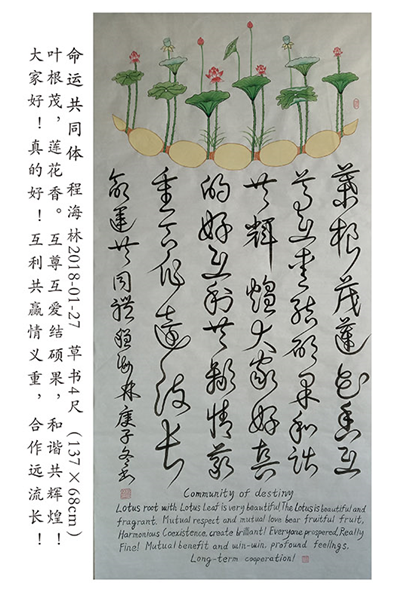 命运共同体 程海林2018-01-27 草书4尺 (137×68cm)
叶根茂，莲花香。互尊互爱结硕果，和谐共辉煌！
大家好！真的好！互利共赢情义重，合作远流长！
葉根茂蓮花香互
尊互爱结硕果和谐
共輝煌大家好真
的好互利共赢情義
重合作遠流长
命運共同體 程海林庚子冬书
Community of destiny
Lotus root with Lotus Leaf is very beautiful,The Lotus is beautiful and
fragrant. Mutual respect and mutual love bear fruitful fruit,
Harmonious Coexistence, create brilliant! Everyone prospered, Really
Fine! Mutual benefit and win-win, profound feelings.
Long-term cooperation!